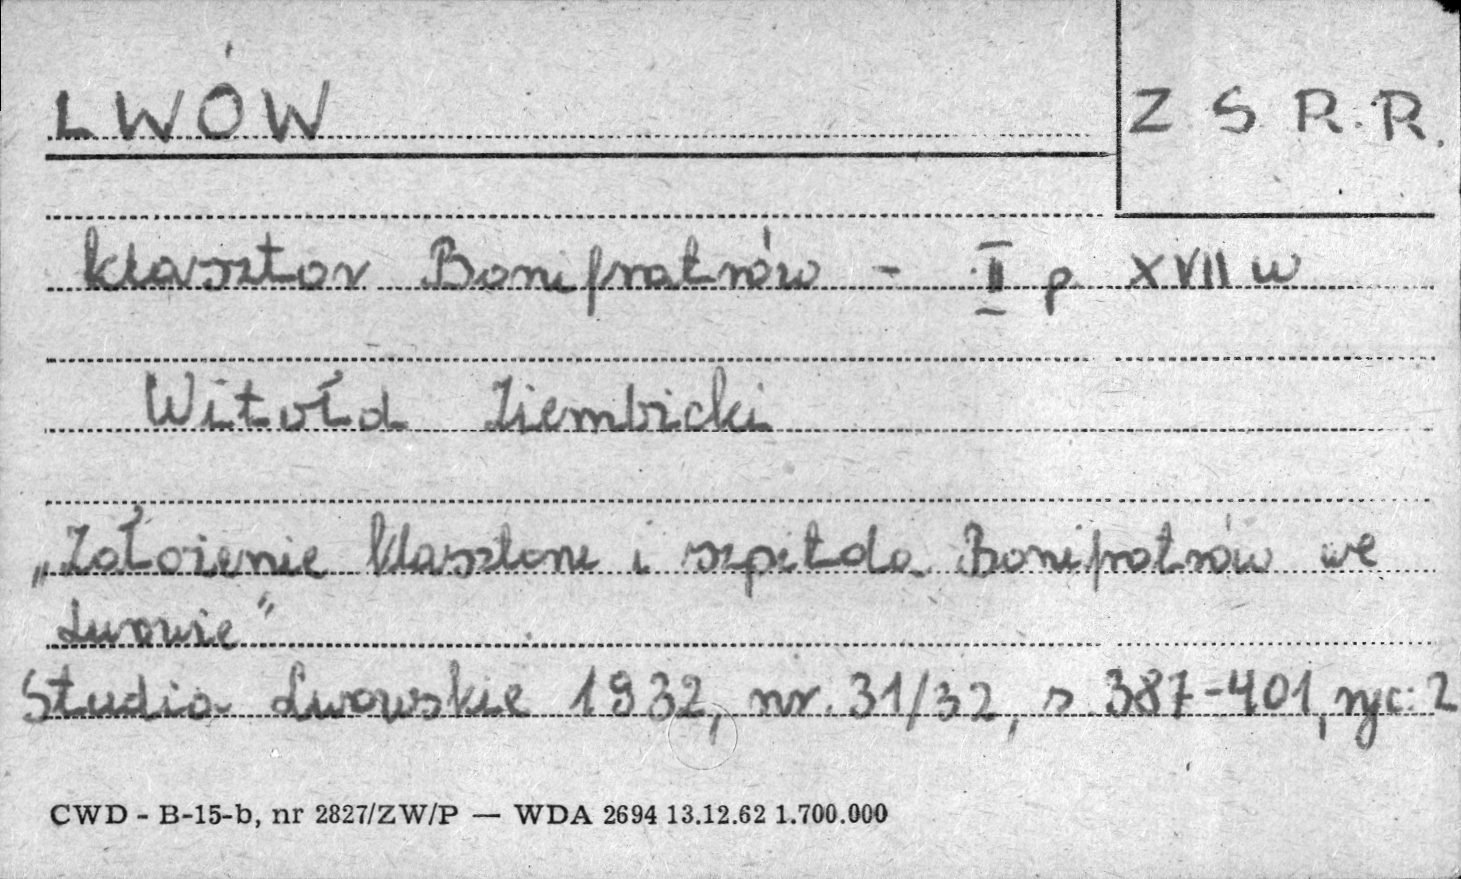 LWÓW
Z S R.R.
klasztor Bonifratrów - II p XVII w
Witołd Ziembicki
„Założenie klasztoru i szpitala Bonifratrów we
Lwowie"
Studia Lwowskie 1932, nr. 31/32, s. 387-401, ryc: 2
CWD - B-15-b, nr 2827/ZW/P — WDA 2694 13.12.62 1.700.000